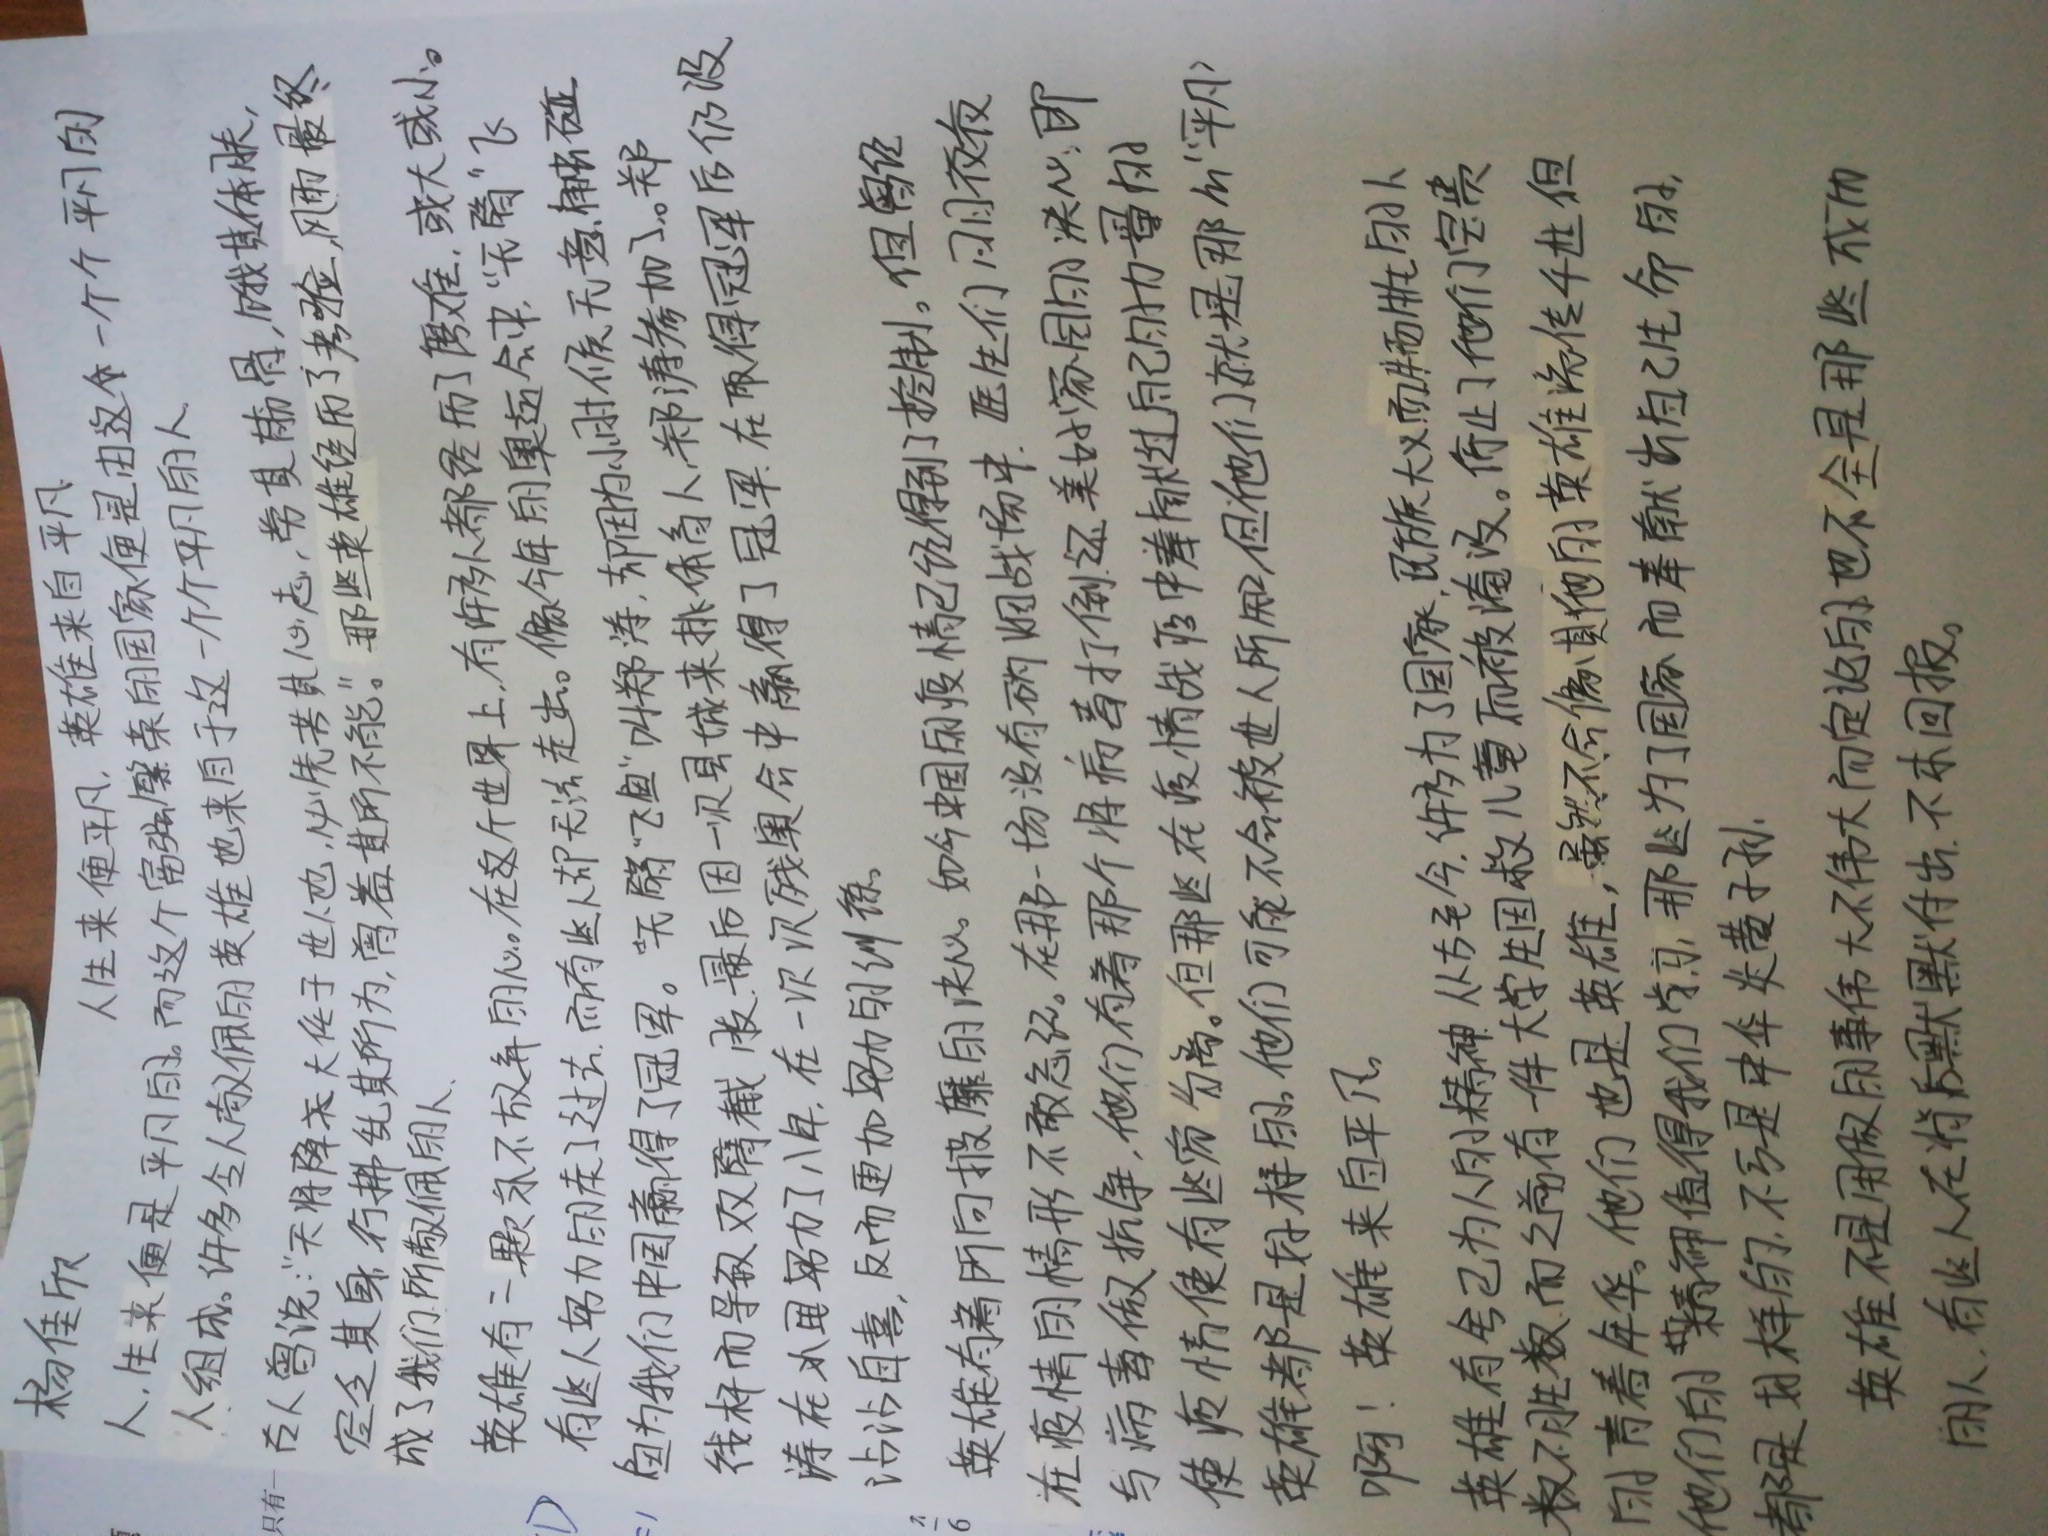 杨佳欣
人生来便平凡,英雄来自平凡
人,生来便是平凡的。而这个富强繁荣的国家便是由这一个个平凡的
人组成。许多令人敬佩的英雄也来自于这一个个平凡的人.
古人曾说:“天将降大任于世人也,必先苦其心志,劳其筋骨,饿其体肤,
空乏其身,行拂乱其所为,曾益其所不能。”那些英雄经历了考验,风雨最终
成了我们所敬佩的人.
英雄有一颗永不放弃的心。在这个世界上,有许多人都经历了磨难,或大或小。
有些人努力的走了过去,而有些人却无法走出。像今年的奥运会中,“无臂”飞
鱼为我们中国赢得了冠军。“无臂”“飞鱼”叫郑涛,却因为小时候无意触碰
线杆而导致双臂截肢,最后因一次县城来挑体育人,郑涛参加了。郑
涛在水里努力了八年,在一次次残奥会中赢得了冠军.在取得冠军后仍没
沾沾自喜,反而更加努力的训练。
英雄有着所向披靡的决心。如今中国的疫情已经得到了控制。但曾经
在疫情的情形不敢忘记。在那一场没有硝烟战场中.医生们日日夜夜
与病毒做抗争,他们有着那个将病毒打倒,还美好家园的决心,即
使疫情使有些家分离。但那些在疫情战疫中奉献过自己的力量的
英雄都是好样的。他们可能不会被世人所用,但他们就是那么“平凡”
啊! 英雄来自平凡.
英雄有舍己为人的精神从古至今,许多为了国家,民族大义而牺牲的人
数不胜数,而之前有一件大学生因救儿童而被淹没。停止了他们宝贵
的青春年华。他们也是英雄,虽然不会像其他的英雄流传千世但
他们的精神值得我们学习,那些为了国家而奉献出自己生命的,
都是好样的,不亏是中华炎黄子孙.
英雄不是用做的事伟大不伟大而定论的也不全是那些成功
的人.有些人在背后默默付出,不求回报。
只有一
6